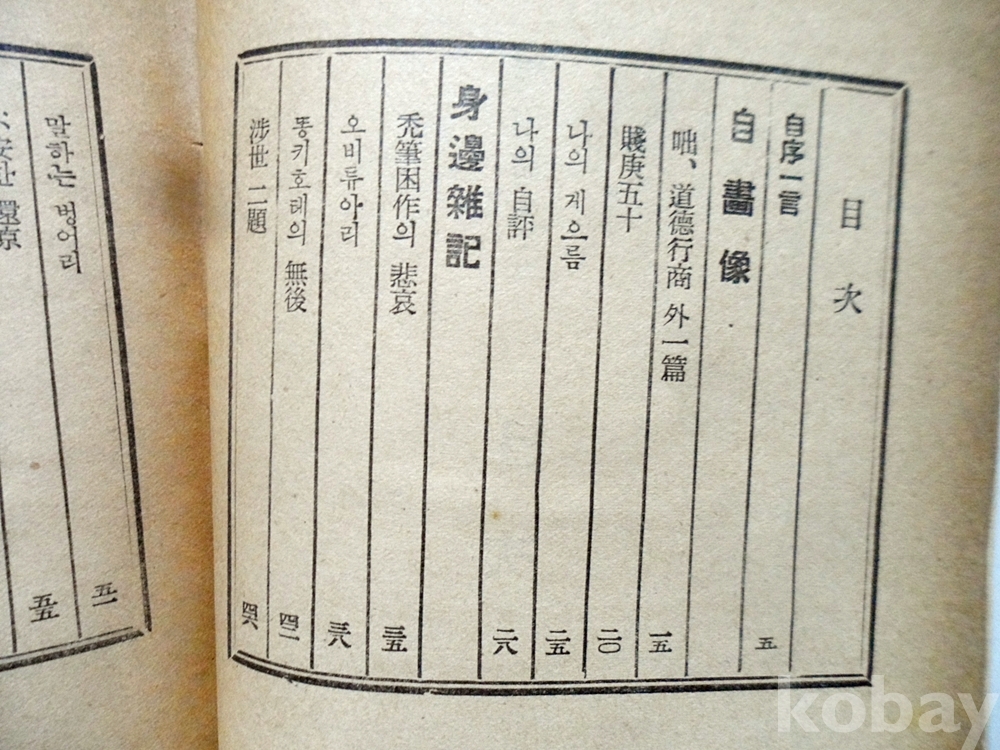 目次
自序一言 五
自畫像
咄、道德行商 外一篇 一五
賤庚五十 二〇
나의 게으름 二五
나의 自評 二八
身邊雜記
禿筆困作의 悲哀 三五
오비류아리 三八
똥키호테의 無後 四二
涉世 二題 四六
五一
말하는 벙어리 五五
kobay